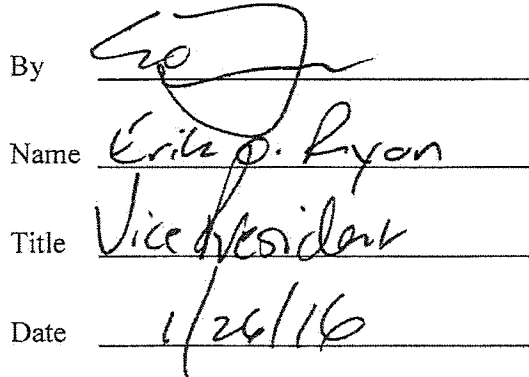 By
Name Erik D. Ryan
Title Vice President
Date 1/26/16